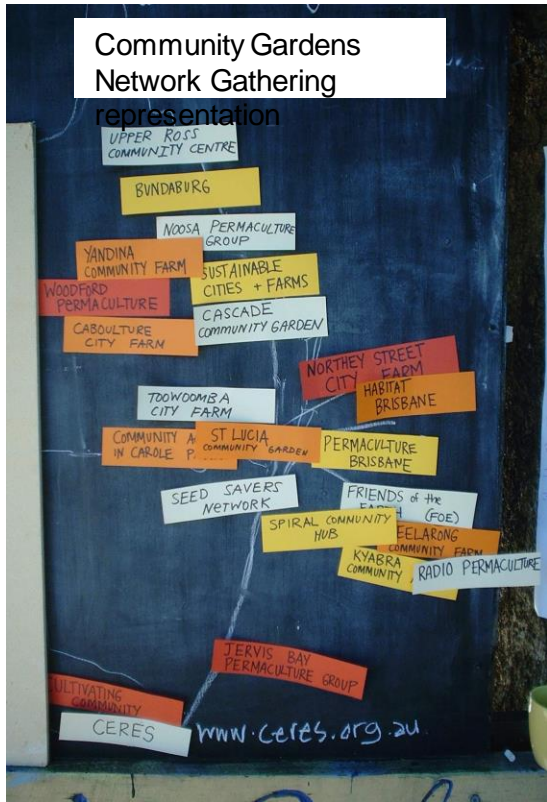 Community Gardens
Network Gathering
representation
UPPER ROSS
COMMUNITY CENTRE
BUNDABURG
NOOSA PERMACULTURE
GROUP
YANDINA
COMMUNITY FARM
SUSTAINABLE
CITIES + FARMS
WOODFORD
PERMACULTURE
CASCADE
COMMUNITY GARDEN
CABOULTURE
CITY FARM
NORTHEY STREET
CITY FARM
HABITAT
BRISBANE
TOOWOOMBA
CITY FARM
COMMUNITY
IN CAROLE
ST LUCIA
COMMUNITY GARDEN
PERMACULTURE
BRISBANE
SEED SAVERS
NETWORK
FRIENDS of the
(FOE)
SPIRAL COMMUNITY
HUB
COMMUNITY FARM
KYABRA
COMMUNITY
RADIO PERMACULTURE
JERVIS BAY
PERMACULTURE GROUP
COMMUNITY
CERES
www.ceres.org.au